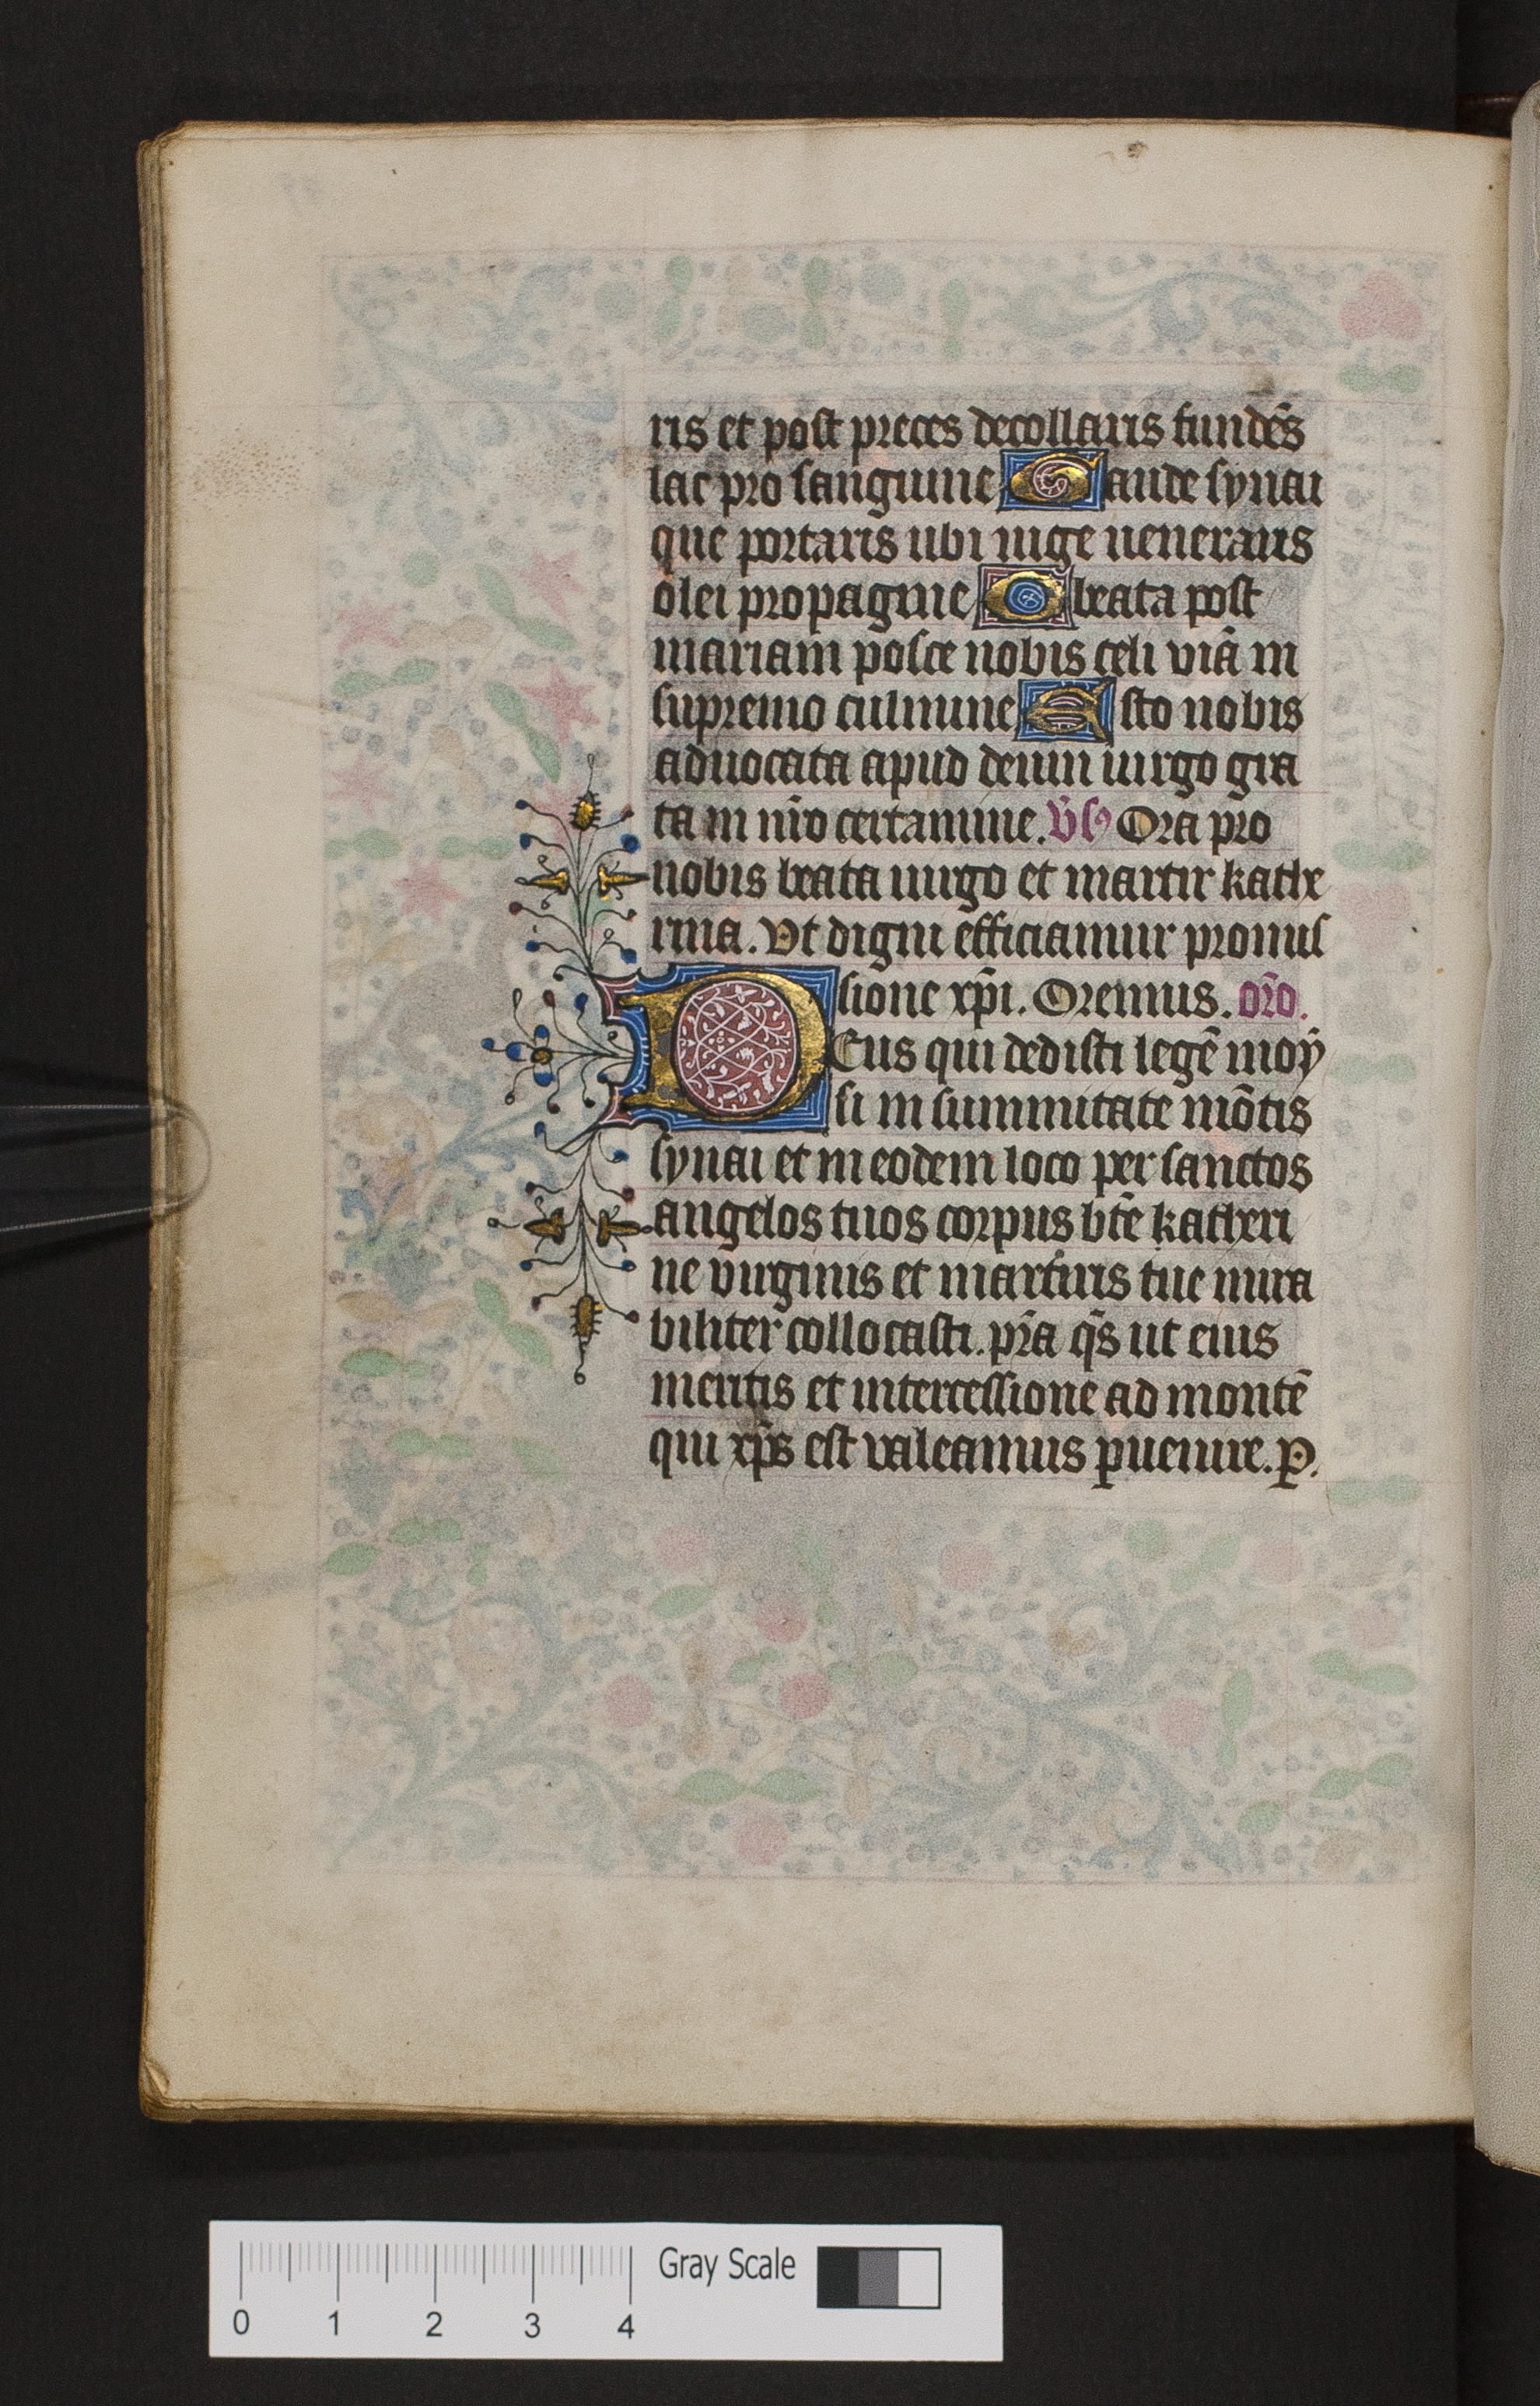 ris et post preces decollaris fundēs
lac pro sanguine Gaude synai
que portaris ubi iuge ueneraris
olei propagine O beata post
mariam posce nobis celi viā in
supremo culmine Esto nobis
aduocata apud deum uirgo gra
ta in nr̄o certamine. v̄sꝰ Ora pro
nobis beata uirgo et martir kathe
rina. Vt digni efficiamur promis
sione xp̄i. Oremus. or̄o.
DEus qui dedisti legē moy
si in summitate mōtis
synai et in eodem loco per sanctos
angelos tuos corpus btē katheri
ne virginis et martiris tue mira
biliter collocasti. pr̄a q̄s ut eius
meritis et intercessione ad montē
qui xp̄s est valeamus ꝑuenire. ꝑ.
Gray Scale
0 1 2 3 4